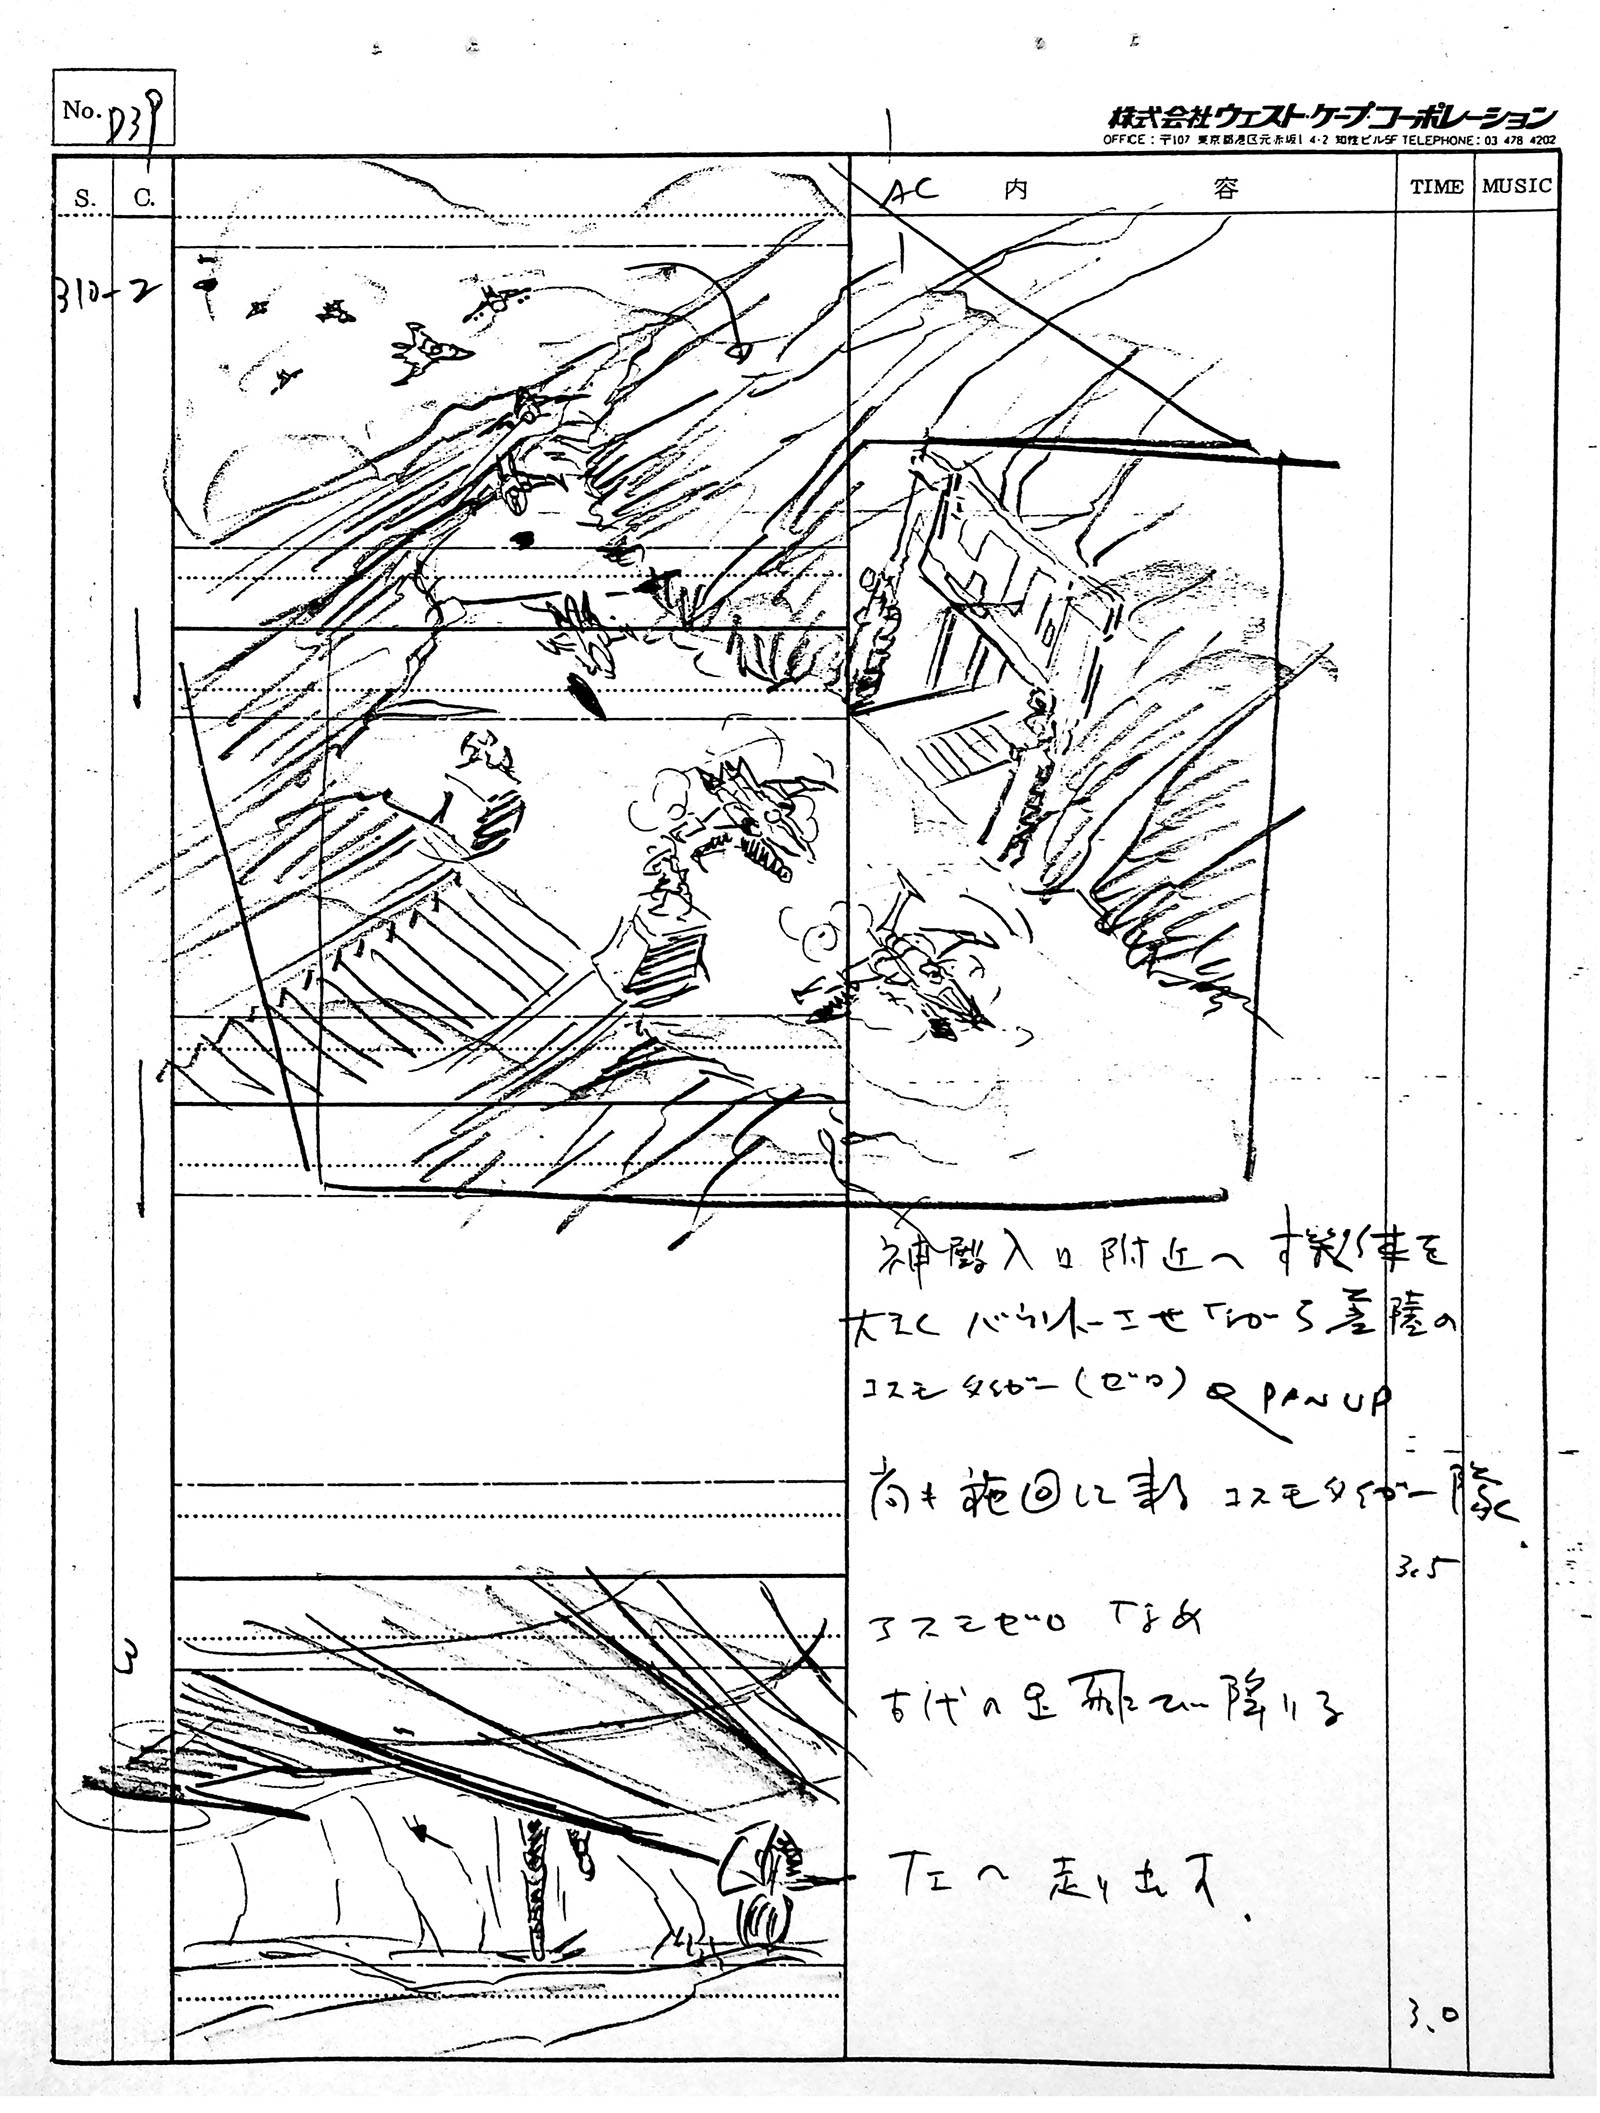 No. D39
株式会社ウエスト・ケープ・コーポレーション
OFFICE：〒107 東京都港区元赤坂1 4-2 知性ビル5F TELEPHONE：03 478 4202
S. C. AC 内 容 TIME MUSIC
310-2
神殿入口附近へ機体を
大きくバウンドーさせながら着陸の
コスモタイガー（ゼロ） PAN UP
尚も旋回に来るコスモタイガー隊
3.5
3
コスモゼロ なめ
古代の 飛び降りる
へ走り出す.
3.0